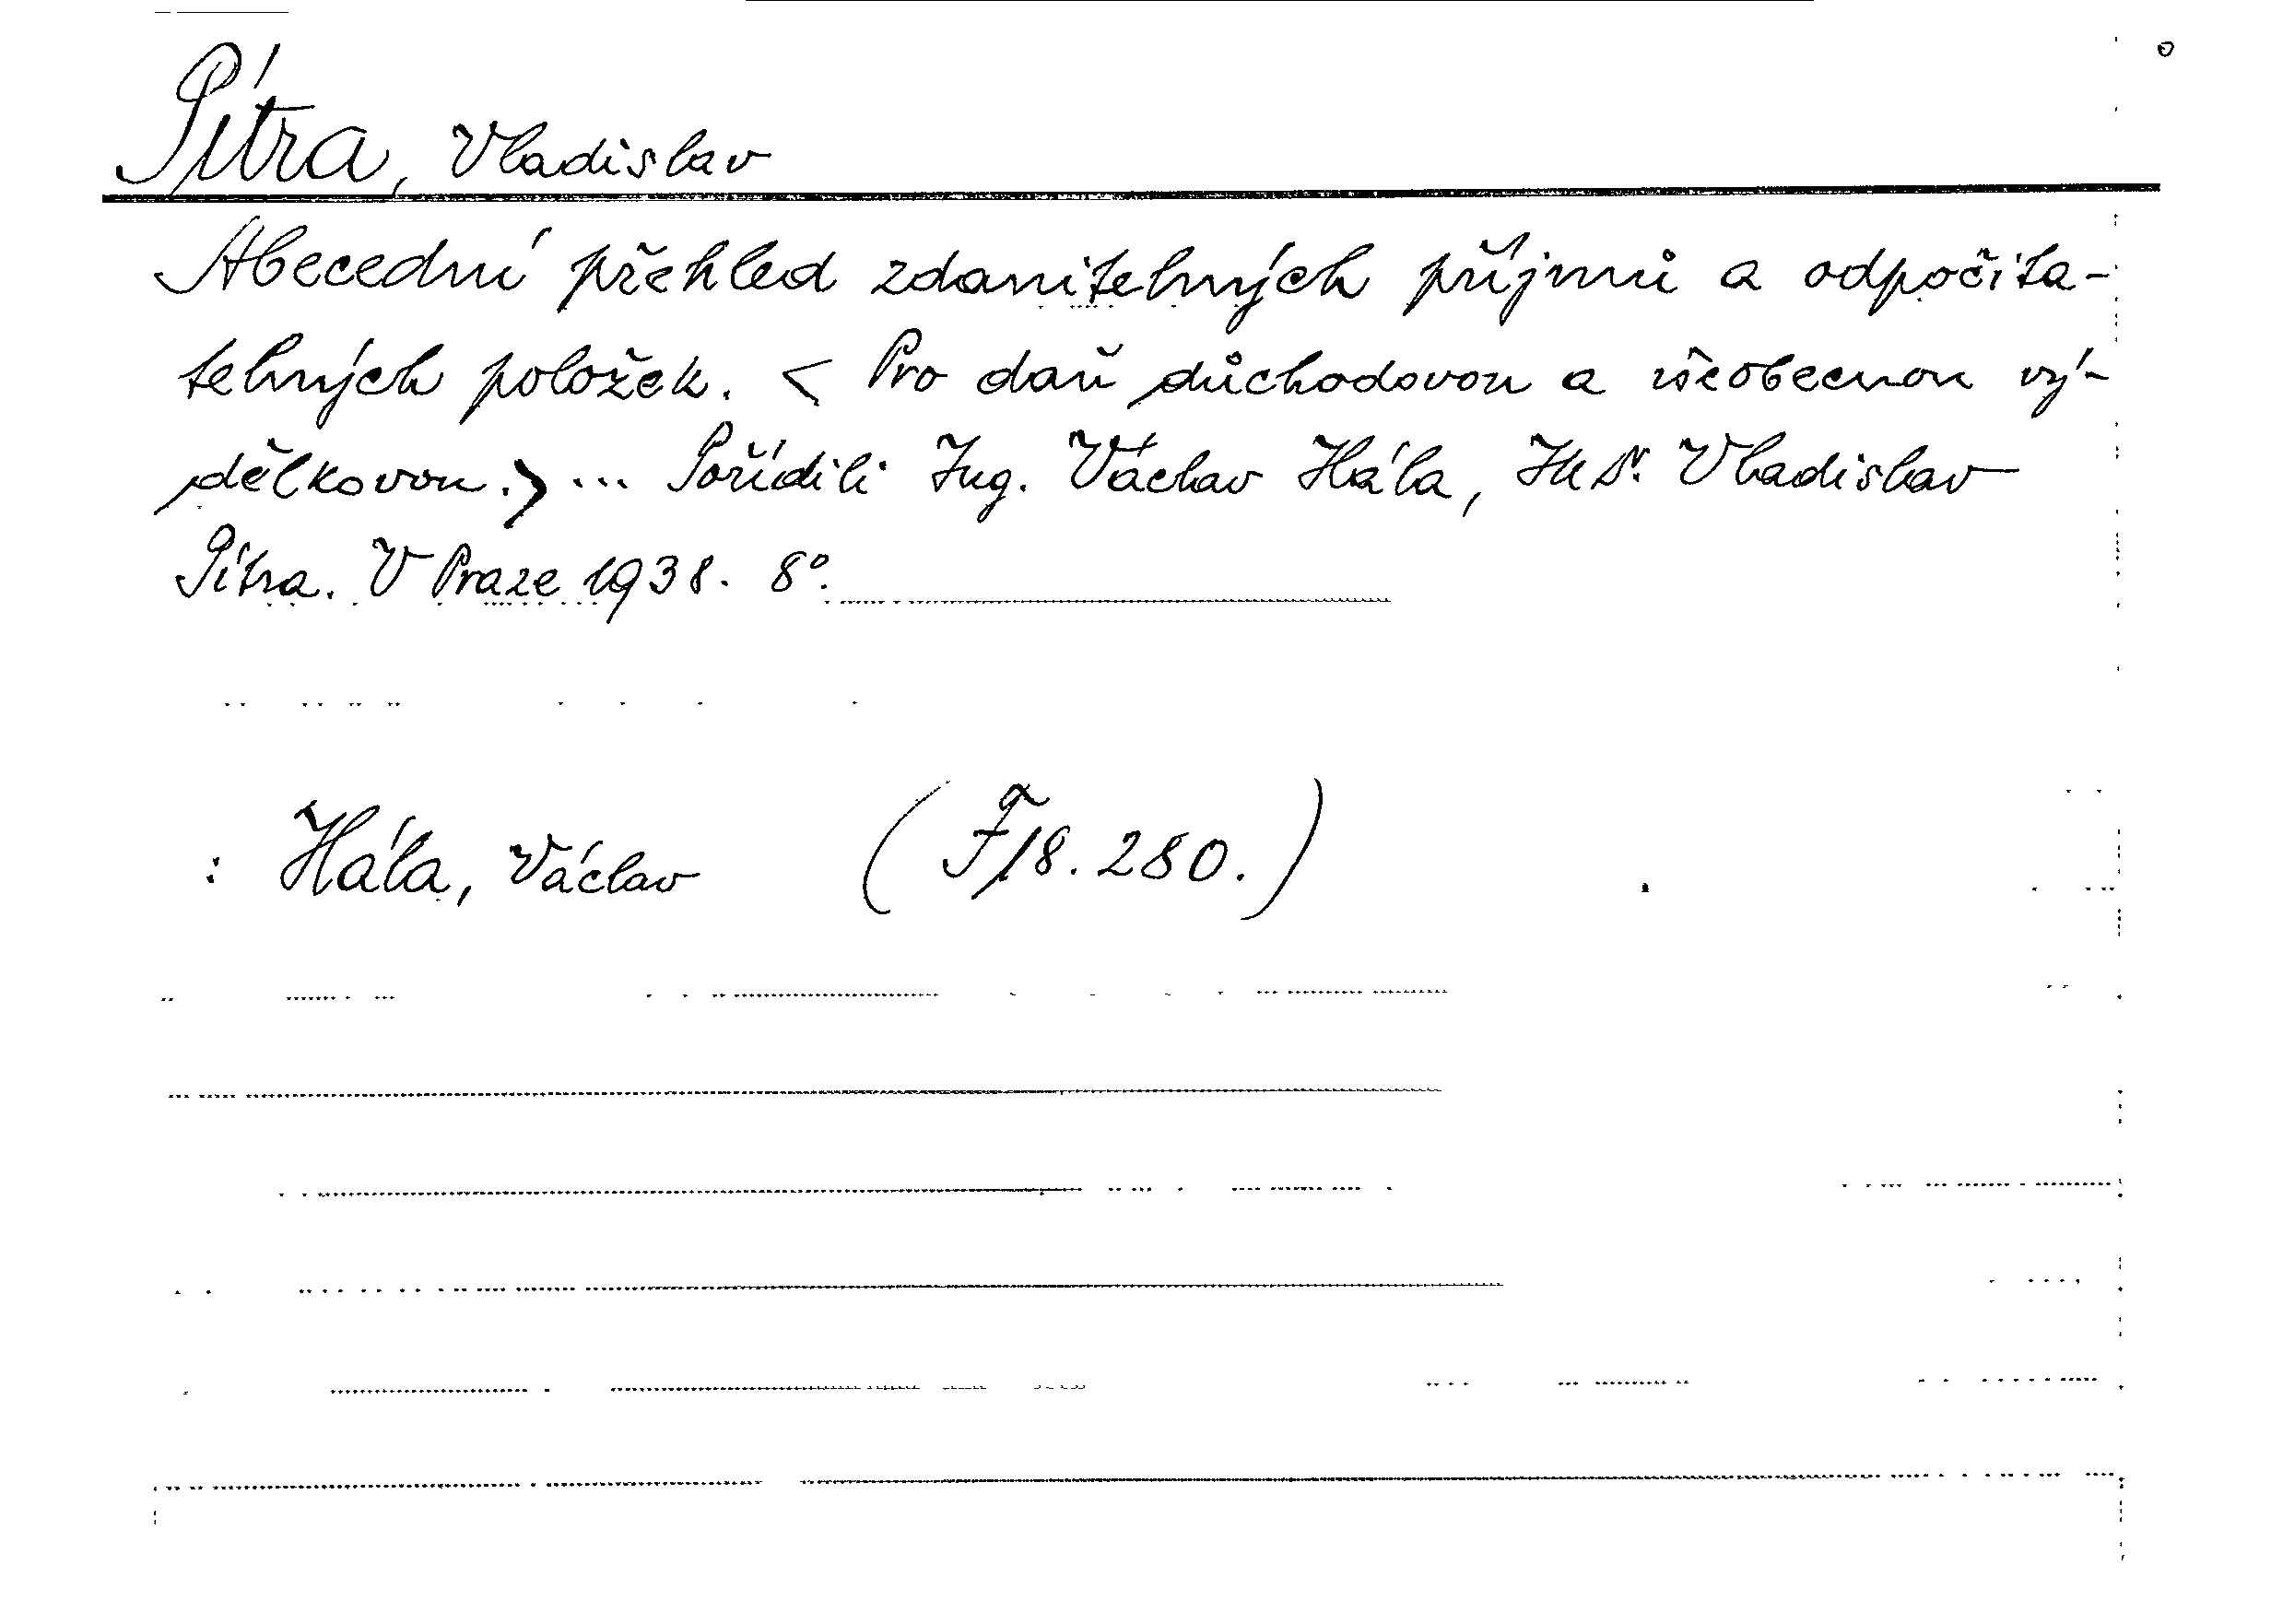 Pítra, Vladislav
Abecední přehled zdanitelných příjmů a odpočita-
telných položek. < Pro daň důchodovou a všeobecnou vý-
dělkovou.> ... Pořídili Ing. Václav Hála, JUDr. Vladislav
Pítra. V Praze 1938. 8°.
: Hála, Václav (F18.280.)